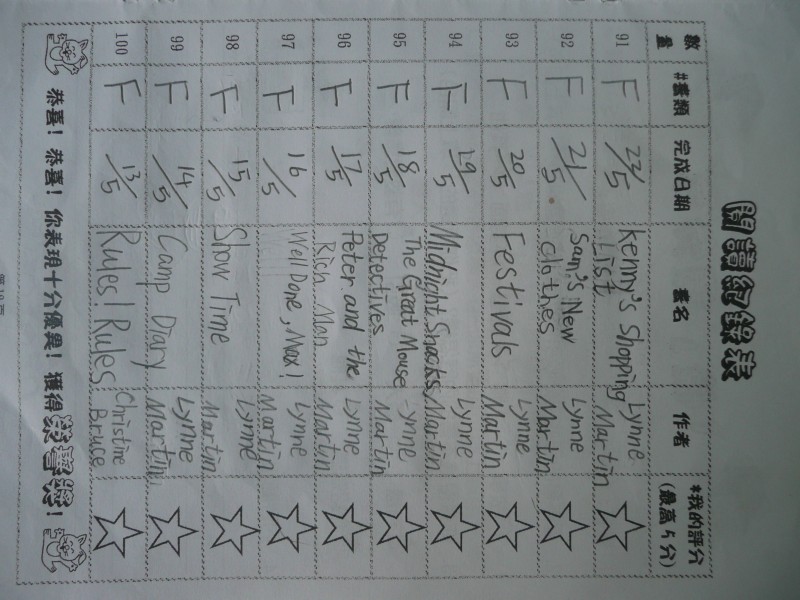 閱讀紀錄表
數量 #書類 完成日期 書名 作者 *我的評分(最高5分)
91 F 23/5 Kenny's Shopping List Lynne Martin
92 F 21/5 Sam's New Clothes Lynne Martin
93 F 20/5 Festivals Lynne Martin
94 F 19/5 Midnight Snacks Lynne Martin
95 F 18/5 The Great Mouse Detectives Lynne Martin
96 F 17/5 Peter and the Rich Man Lynne Martin
97 F 16/5 Well Done, Max! Lynne Martin
98 F 15/5 Show Time Lynne Martin
99 F 14/5 Camp Diary Lynne Martin
100 F 13/5 Rules! Rules! Christine Bruce
恭喜!恭喜!你表現十分優異!獲得榮譽獎!